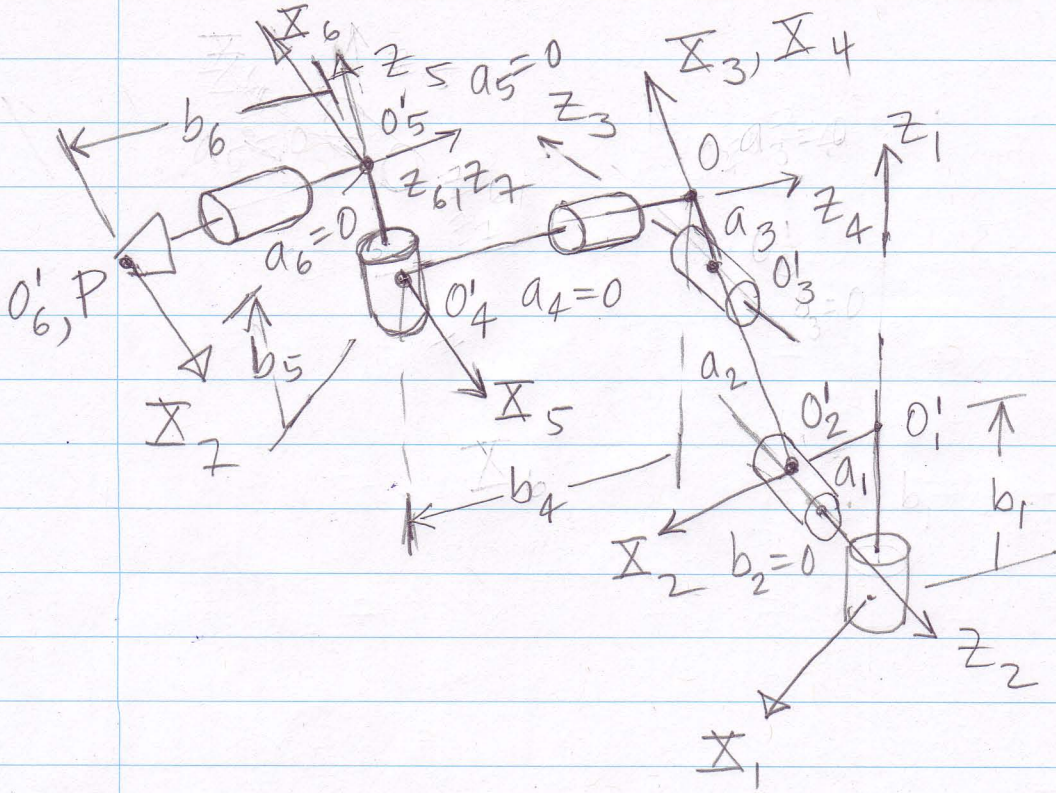 X₆
Z₅ a₅=0
X₃, X₄
b₆
O'₅
Z₃
Z₁
O
Z₆, Z₇
Z₄
a₃
a₆=0
O'₃
O'₆, P
O'₄
a₄=0
b₅
a₂
X₇
X₅
O'₂
O'₁
a₁
b₄
b₁
X₂
b₂=0
Z₂
X₁